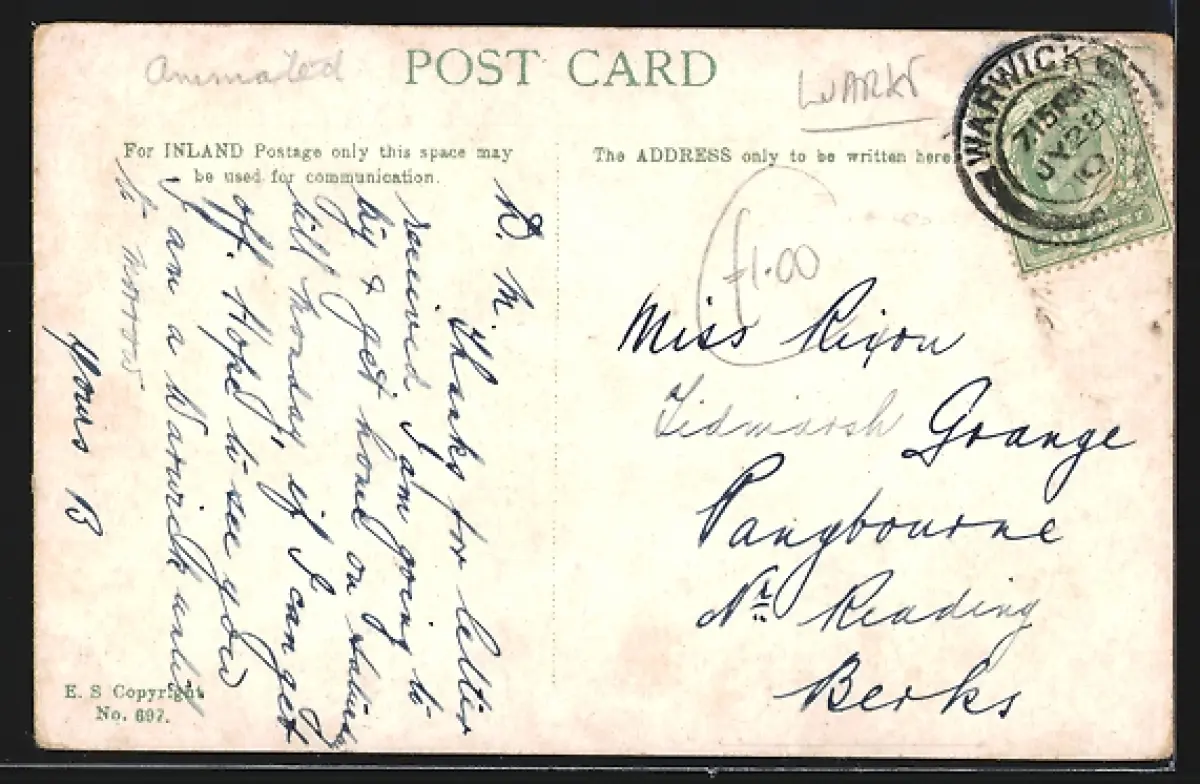 Animated
POST CARD
WARKS
For INLAND Postage only this space may
be used for communication.
The ADDRESS only to be written here.
WARWICK
7 15 PM
JY 28
10
£1.00
D. M.
Thanks for letter
received. I am going to
try & get home on
till Monday if I can get
off. Hope to see you
I am a Warwick until
to morrow
Yours B
Miss Rixon
Tidmarsh Grange
Pangbourne
Nr Reading
Berks
E. S Copyright
No. 697.